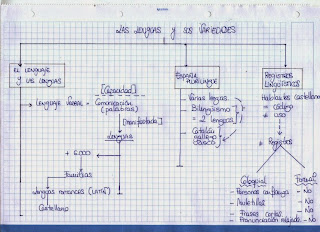 LAS LENGUAS Y SUS VARIEDADES
EL LENGUAJE
Y LAS LENGUAS
- LENGUAJE VERBAL = Comunicación
(palabras)
[Capacidad]
[manifestada]
LENGUAS
+ 6.000
Familias
Lenguas romances (LATÍN)
Castellano
ESPAÑA
PLURILINGÜE
- Varias lenguas
- Bilingüismo
= 2 lenguas
- Catalán
gallego
vasco
Registros
Lingüísticos
Hablantes castellano
= código
≠ uso
Registros
Coloquial
- Personas confianza
- Muletillas
- Frases cortas
- Pronunciación rápida
Formal
- No
- No
- No
- No